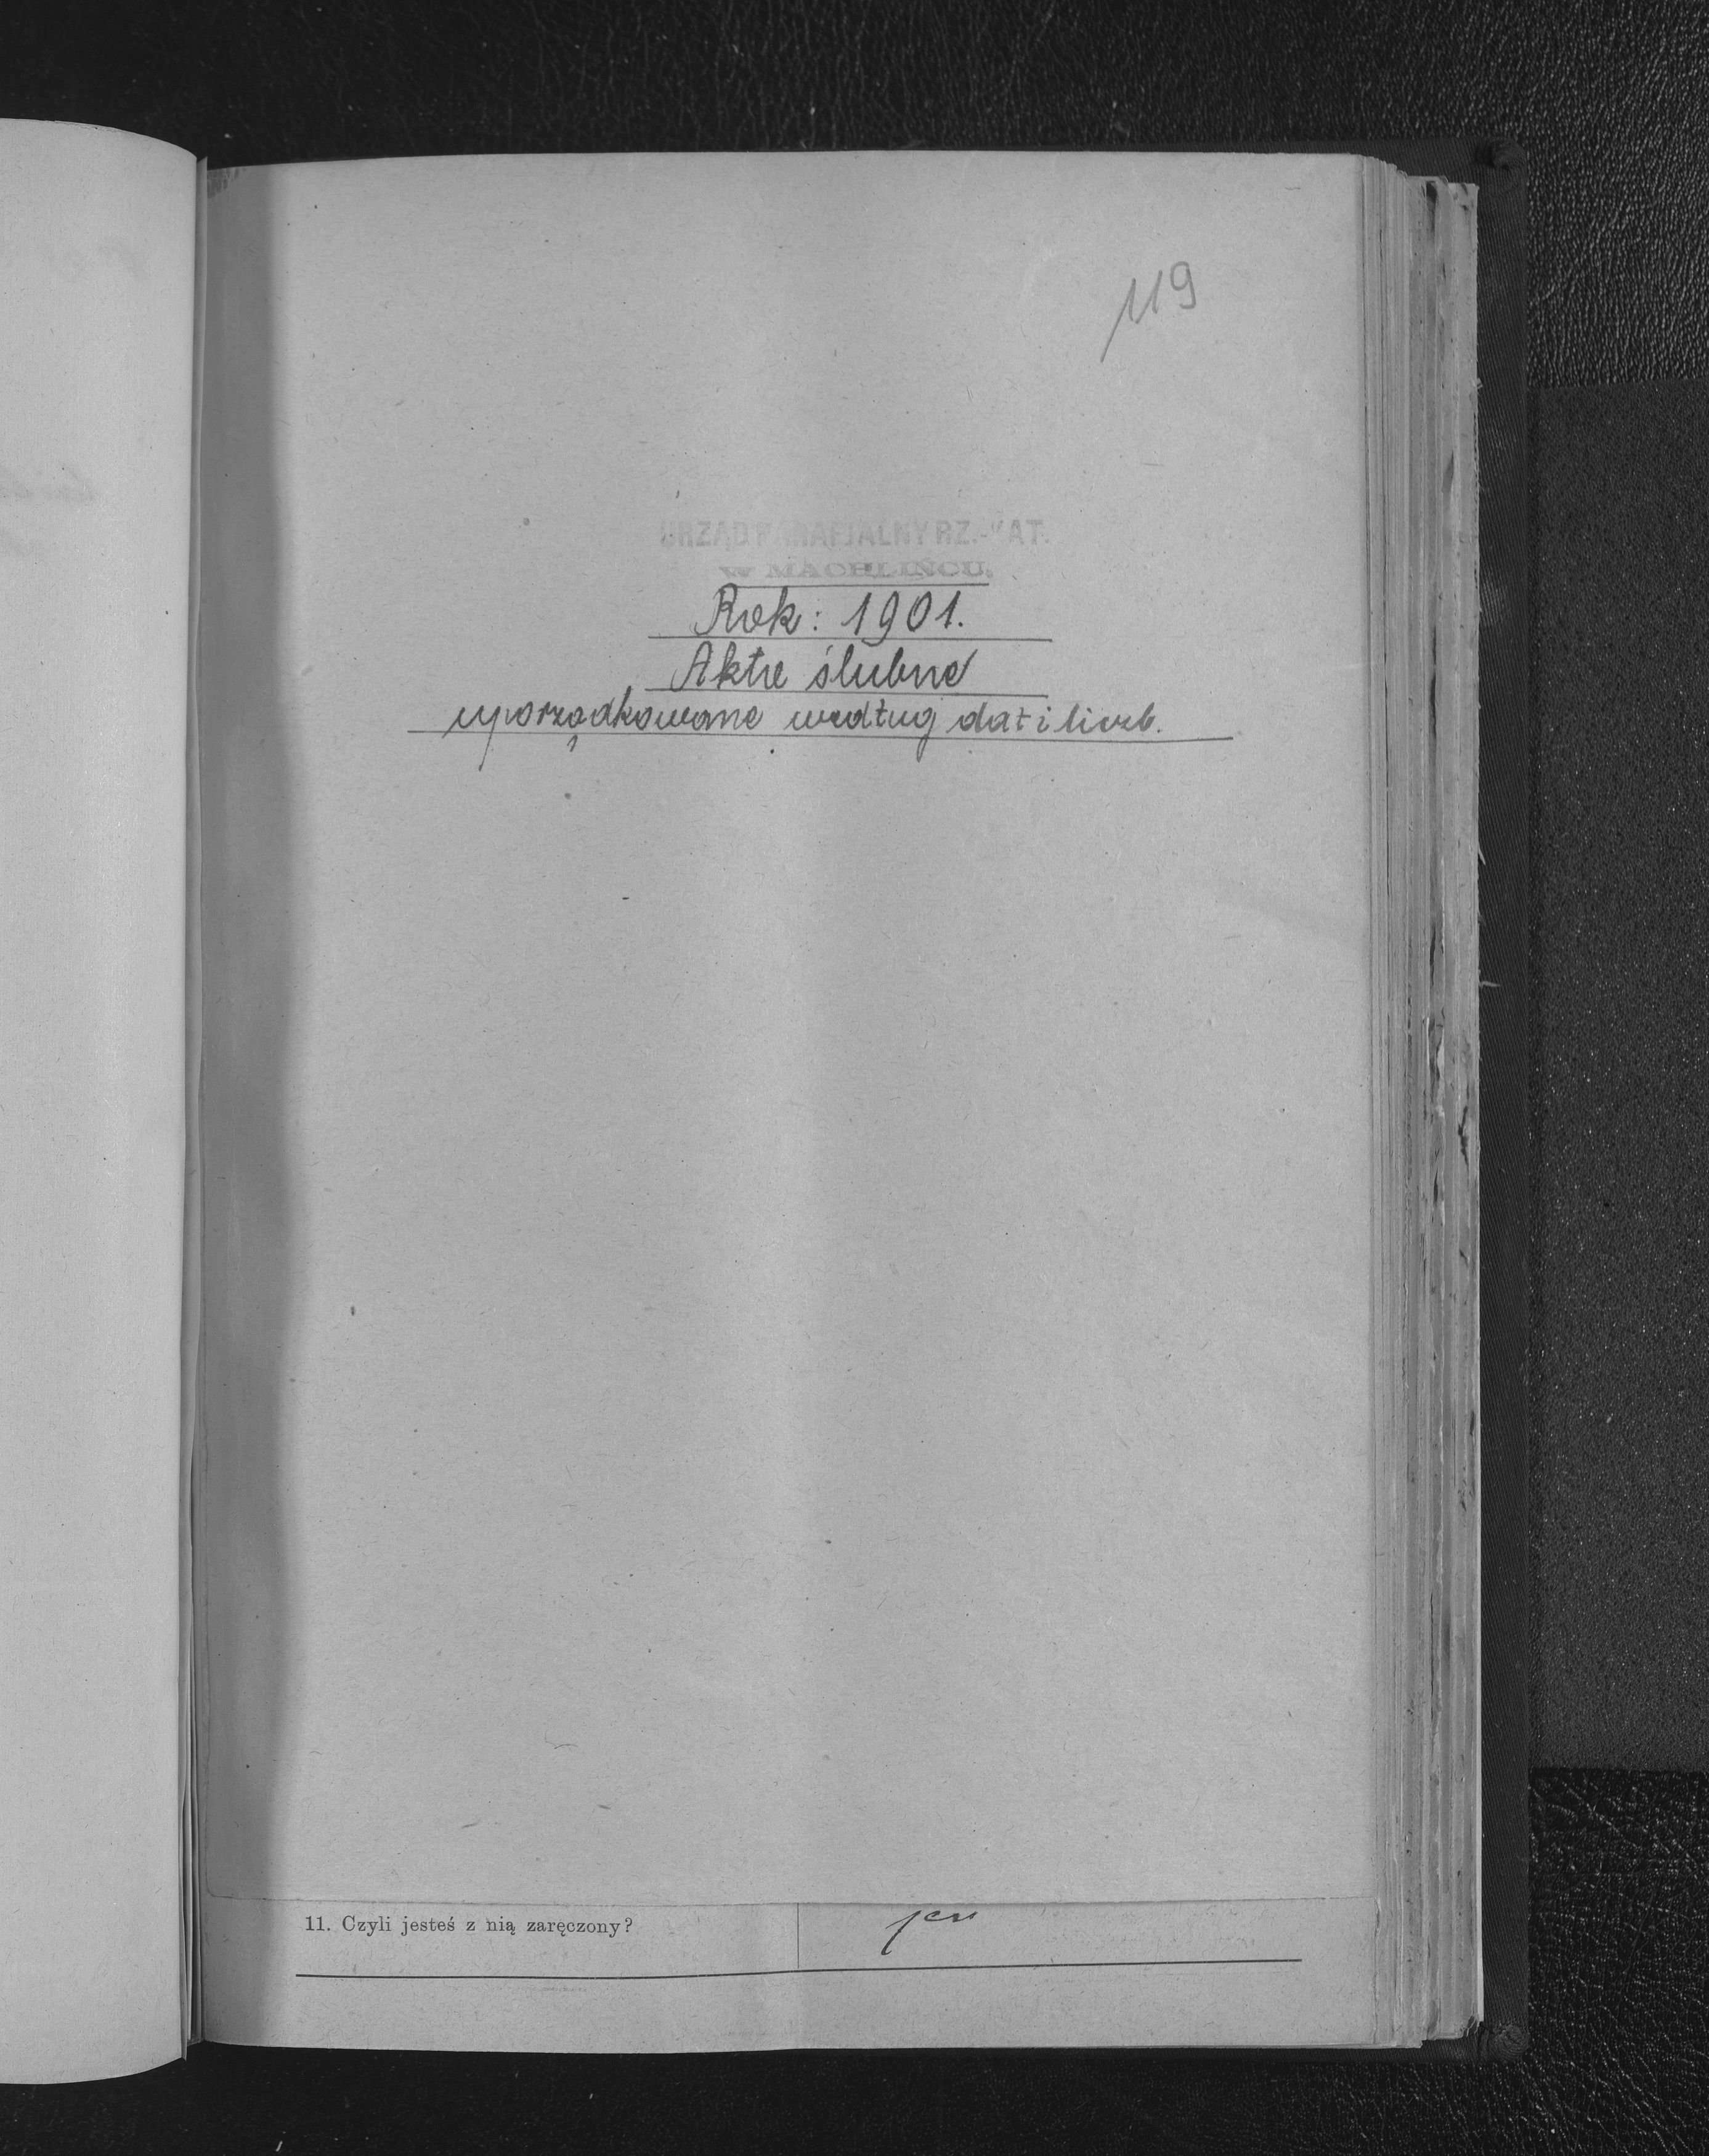 119
URZĄD PARAFJALNY RZ.-KAT.
w MACHLIŃCU.
Rok: 1901.
Akta ślubne
uporządkowane według dat i liczb.
11. Czyli jesteś z nią zaręczony?